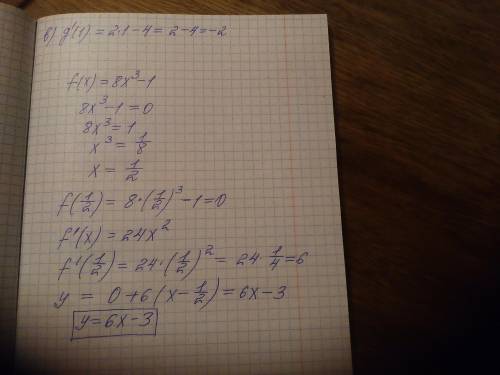 в) g'(1) = 2·1-4 = 2-4=-2
f(x) = 8x³-1
8x³-1=0
8x³=1
x³=1/8
x=1/2
f(1/2) = 8·(1/2)³-1=0
f'(x) = 24x²
f'(1/2) = 24·(1/2)² = 24·1/4=6
y = 0+6(x-1/2)=6x-3
y=6x-3